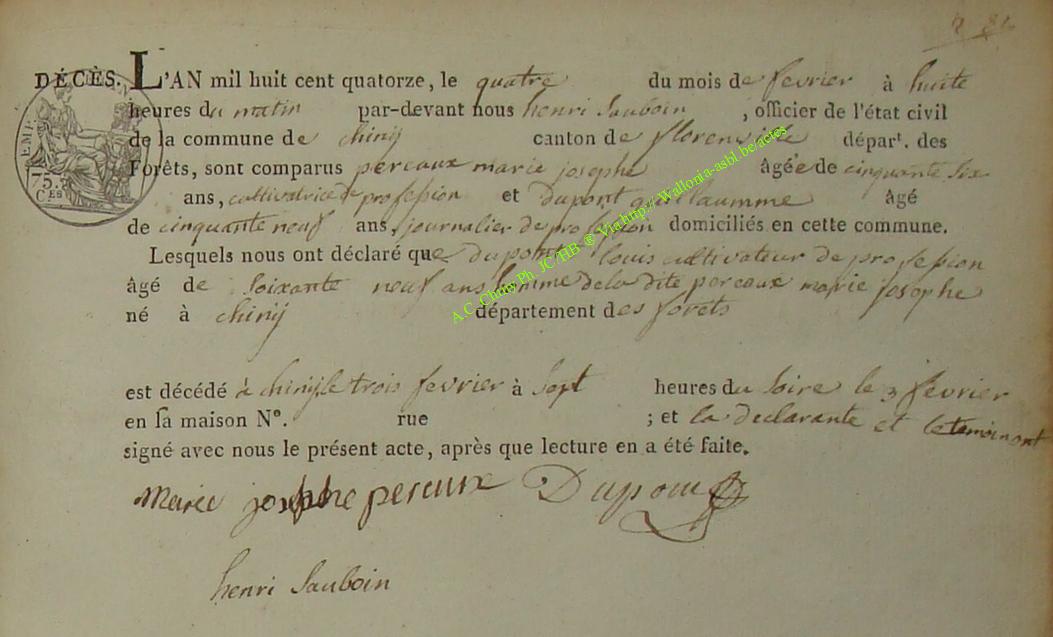 DÉCÈS. L'AN mil huit cent quatorze, le quatre du mois de fevrier à huite
heures du matin par-devant nous henri Sauboin , officier de l'état civil
de la commune de chinij canton de florenville départ. des
Forêts, sont comparus perceaux marie josephe âgée de cinquante six
ans, cultivatrice de profession et dupont guillaumme âgé
de cinquante neuf ans, journalier de profession domiciliés en cette commune.
Lesquels nous ont déclaré que dupont louis cultivateur de profession
âgé de soixante neuf ans homme de la dite perceaux marie josephe
né à chinij département des forets
est décédé à chinij le trois fevrier à sept heures du soire le 3 fevrier
en sa maison N°. rue ; et la declarante et le temoin ont
signé avec nous le présent acte, après que lecture en a été faite.
Marie josephe perceaux Dupont
henri Sauboin
EMP.
75.
C.ES
A.C. Chiny Ph. JC/HB @ Via http://Wallonia-asbl.be/actes